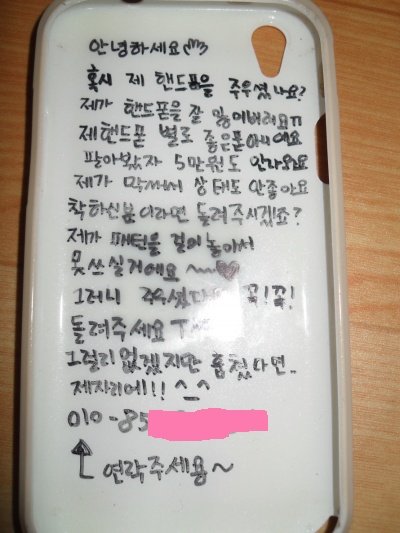 안녕하세요
혹시 제 핸드폰을 주우셨나요?
제가 핸드폰을 잘 잃어버려요ㅠ
제핸드폰 별로 좋은폰아니에요
팔아봤자 5만원도 안나와요
제가 막써서 상태도 안좋아요
착하신분이라면 돌려주시겠죠?
제가 패턴을 걸어놓아서
못쓰실거에요 ~~♥
그러니 주우셨다면 꼭!꼭!
돌려주세요
그럴리 없겠지만 훔쳤다면..
제자리에!! ^_^
010-85
↑ 연락주세용~